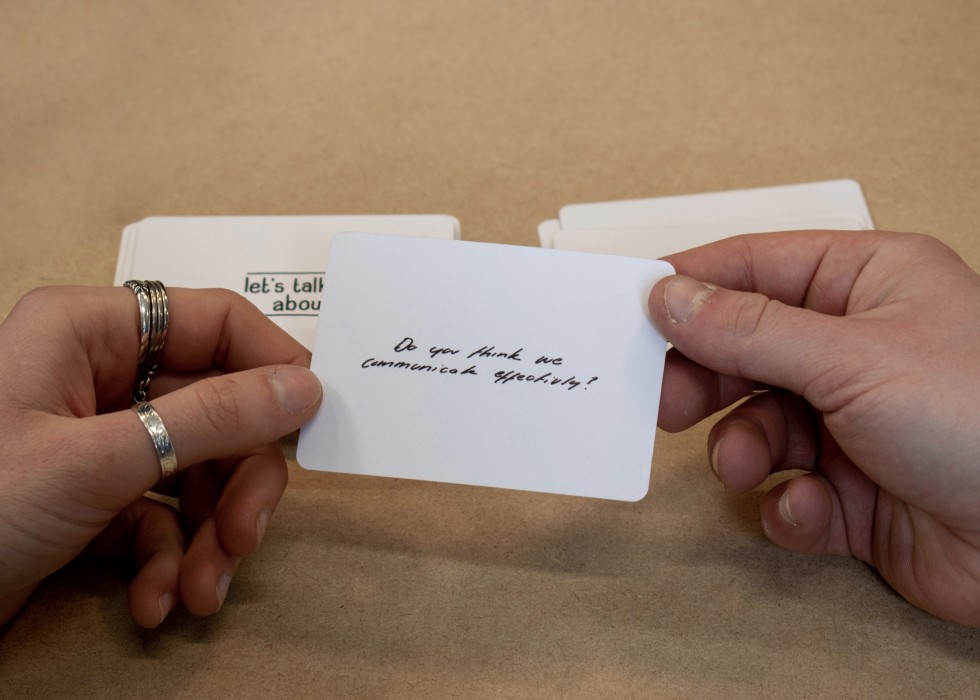 let's talk
abou
Do you think we
communicate effectively?